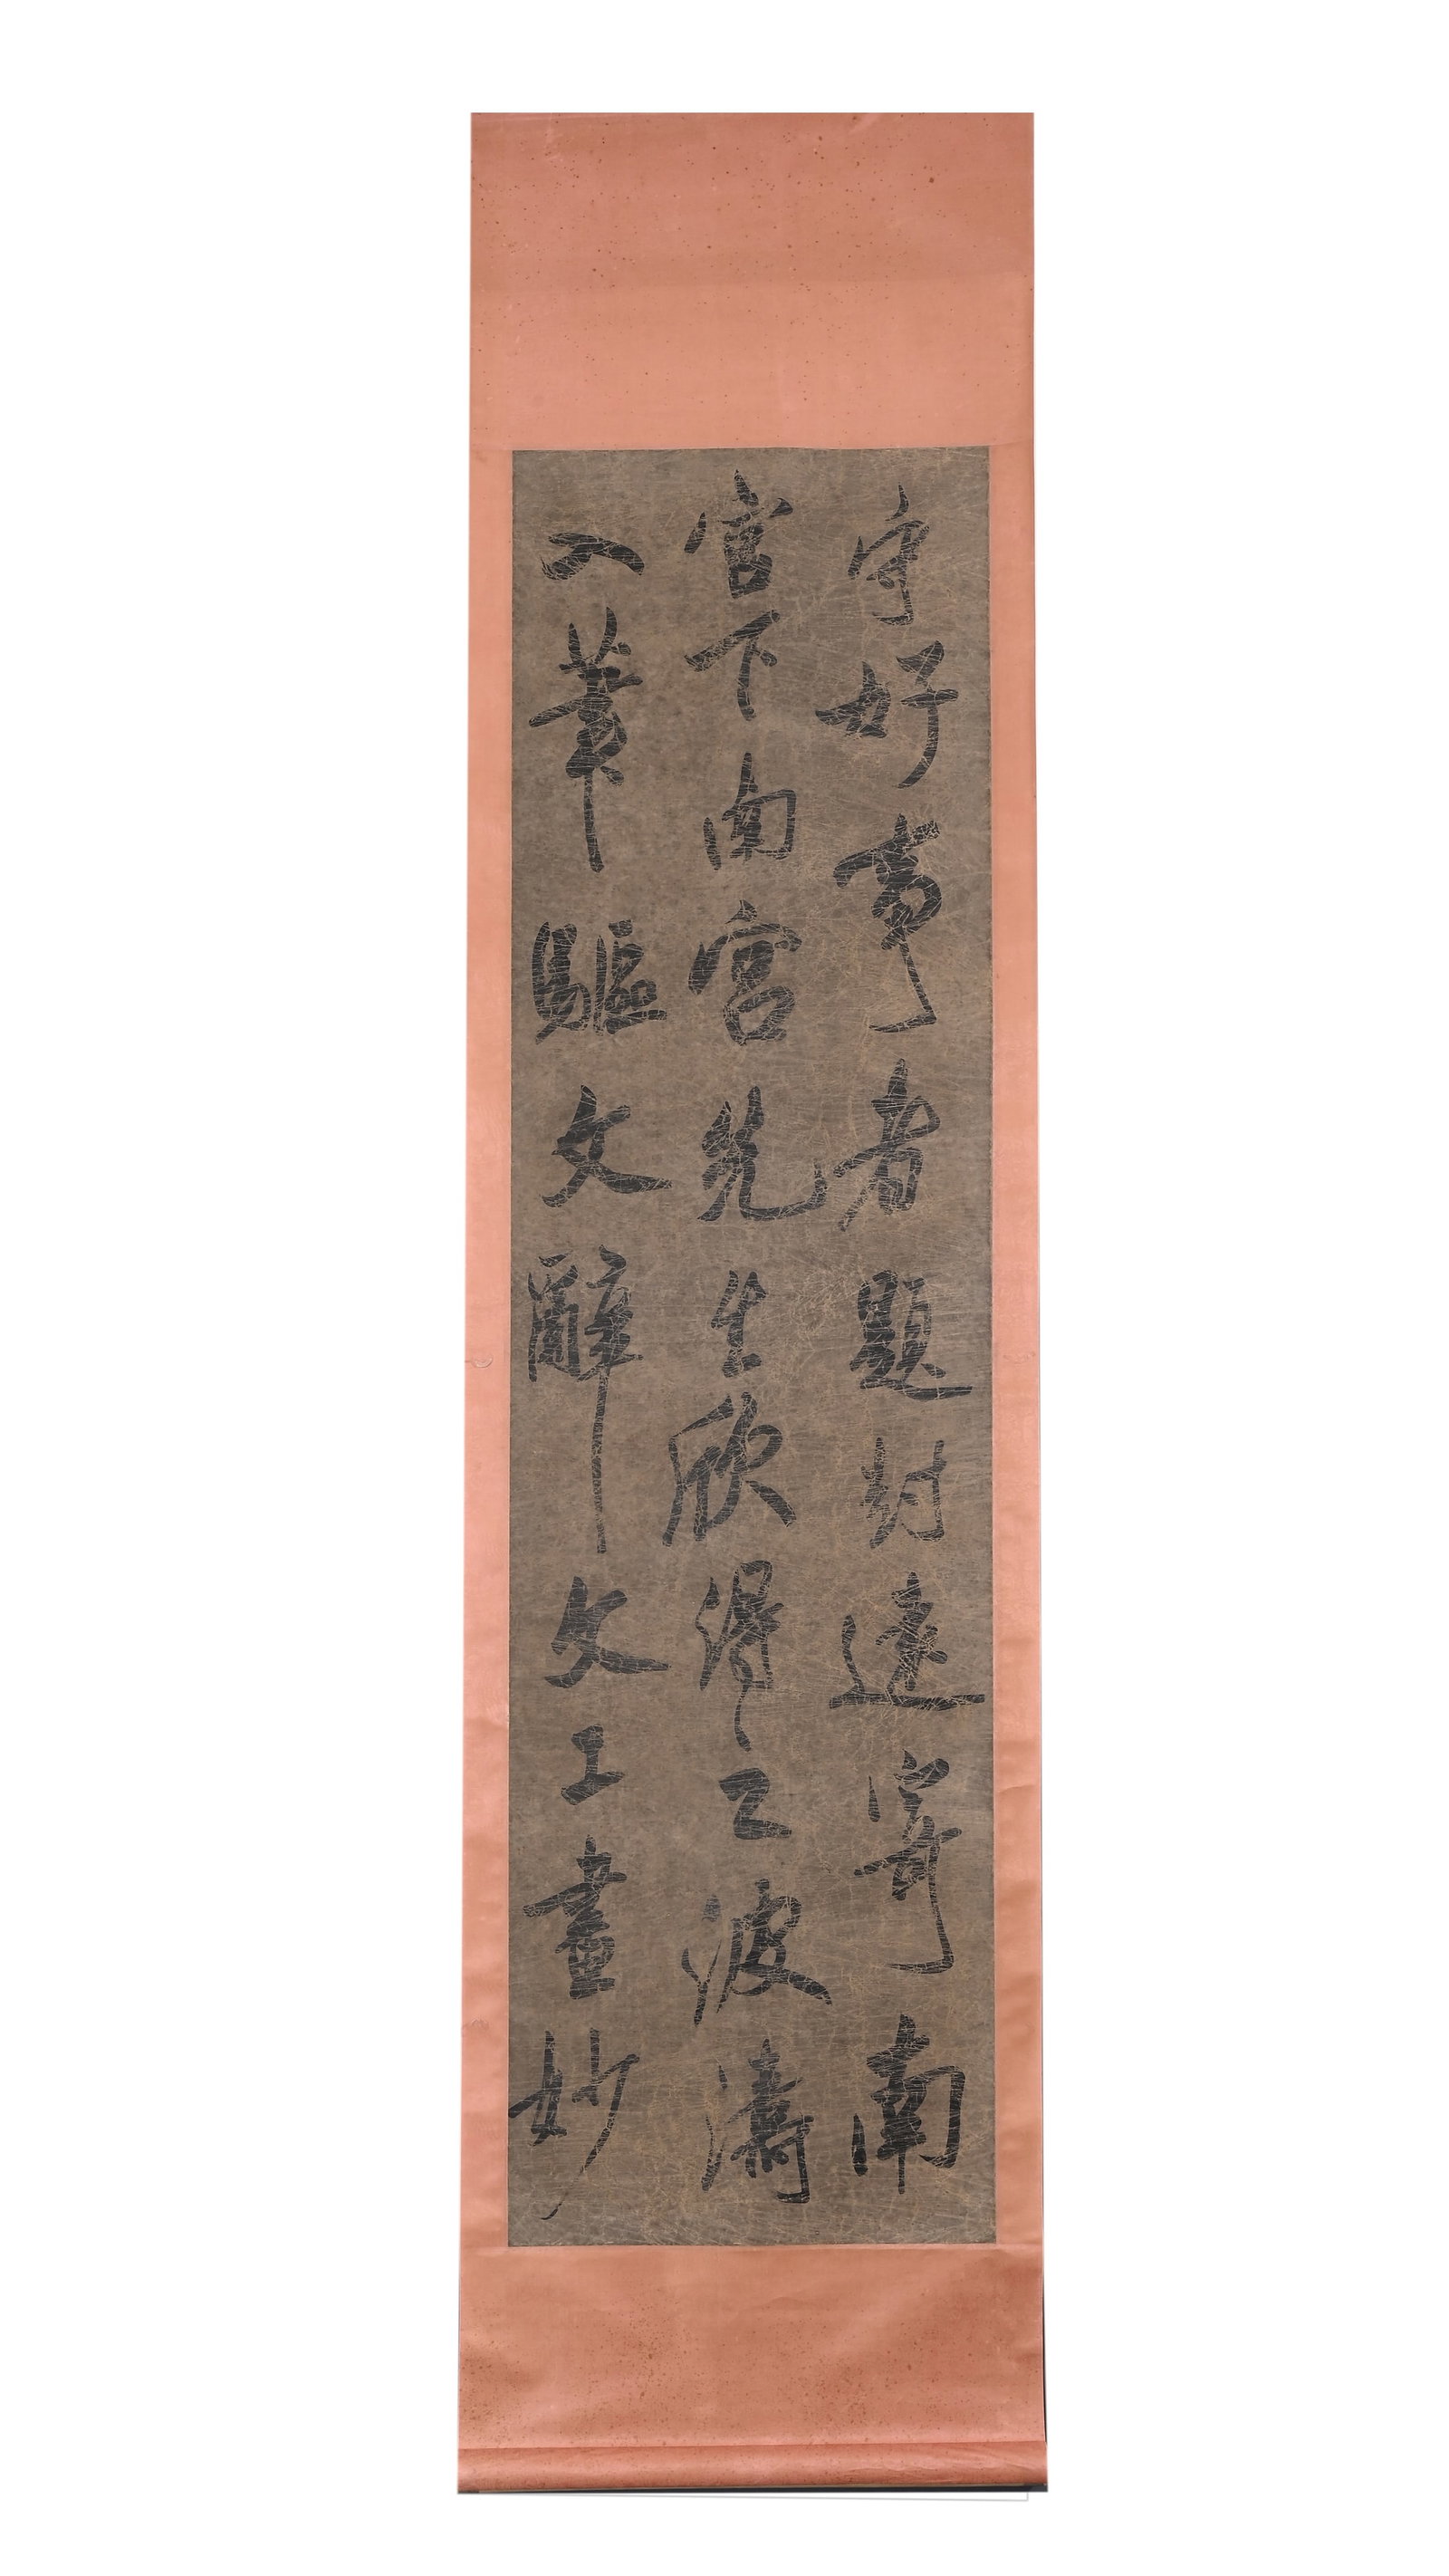 守好事者題封遠寄南
宮下南宮先生欣得之波濤
入筆驅文辭文工畫妙